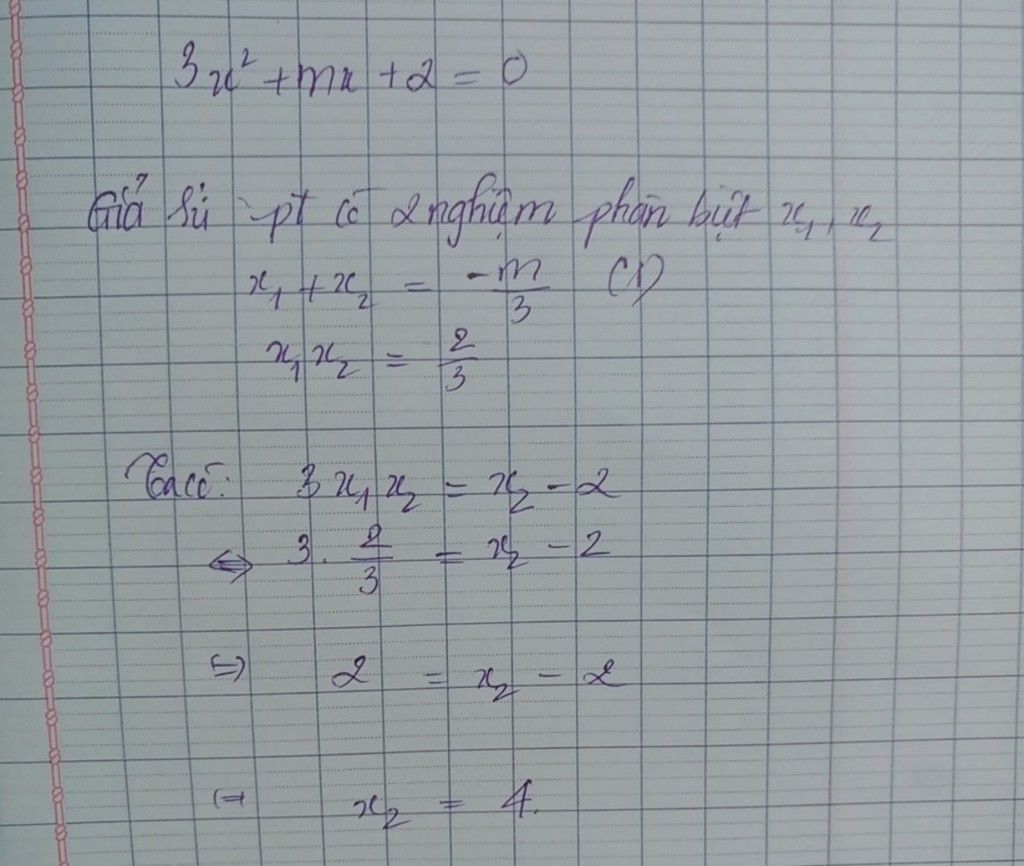 3x² + mx + 2 = 0
Giả sử pt có 2 nghiệm phân biệt x₁, x₂
x₁ + x₂ = -m/3 (1)
x₁x₂ = 2/3
Ta có: 3x₁x₂ = x₂ - 2
⇔ 3. 2/3 = x₂ - 2
⇔ 2 = x₂ - 2
⇔ x₂ = 4.